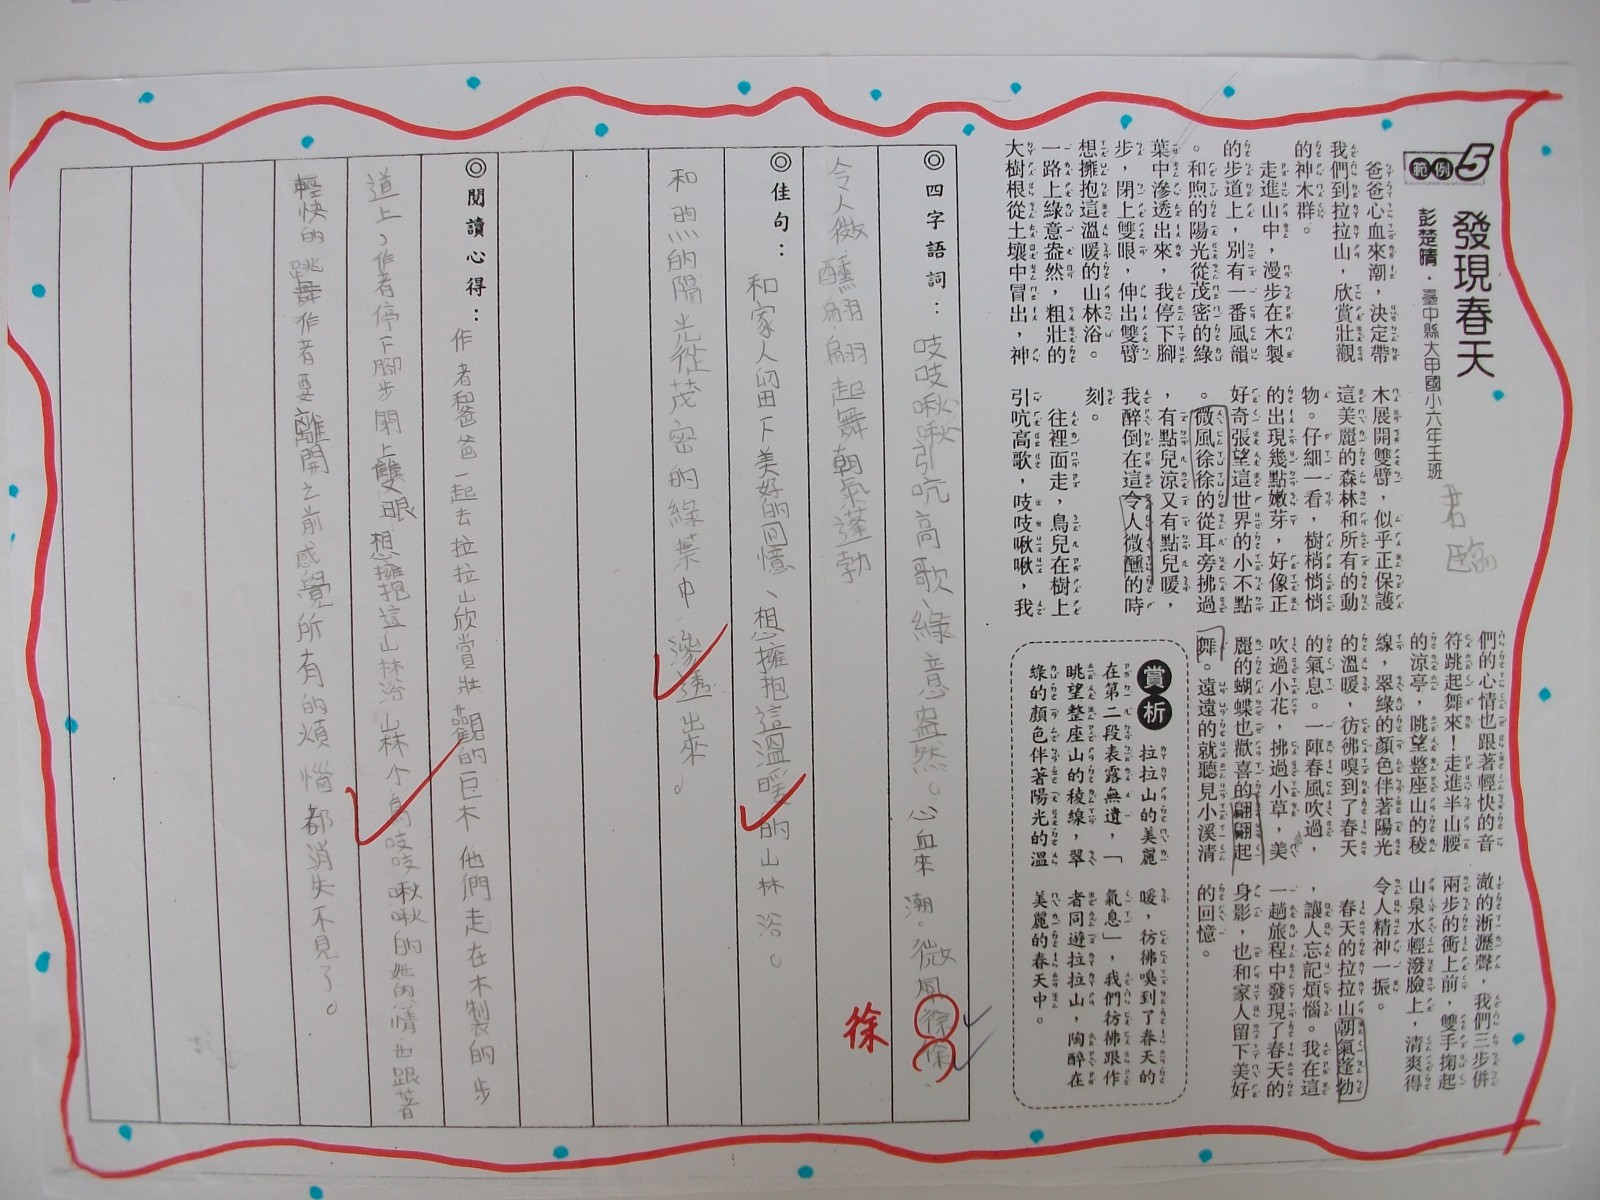 範例5
發現春天
彭楚晴．臺中縣大甲國小六年壬班
君臨
爸爸心血來潮，決定帶
我們到拉拉山，欣賞壯觀
的神木群。
走進山中，漫步在木製
的步道上，別有一番風韻
。和煦的陽光從茂密的綠
葉中滲透出來，我停下腳
步，閉上雙眼，伸出雙臂
想擁抱這溫暖的山林浴。
一路上綠意盎然，粗壯的
大樹根從土壤中冒出，神
木展開雙臂，似乎正保護
這美麗的森林和所有的動
物。仔細一看，樹梢悄悄
的出現幾點嫩芽，好像正
好奇張望這世界的小不點
。微風徐徐的從耳旁拂過
，有點兒涼又有點兒暖，
我醉倒在這令人微醺的時
刻。
往裡面走，鳥兒在樹上
引吭高歌，吱吱啾啾，我
們的心情也跟著輕快的音
符跳起舞來！走進半山腰
的涼亭，眺望整座山的稜
線，翠綠的顏色伴著陽光
的溫暖，彷彿嗅到了春天
的氣息。一陣春風吹過，
吹過小花，拂過小草，美
麗的蝴蝶也歡喜的翩翩起
舞。遠遠的就聽見小溪清
澈的淅瀝聲，我們三步併
兩步的衝上前，雙手掬起
山泉水輕潑臉上，清爽得
令人精神一振。
春天的拉拉山朝氣蓬勃
，讓人忘記煩惱。我在這
一趟旅程中發現了春天的
身影，也和家人留下美好
的回憶。
賞析
拉拉山的美麗
在第二段表露無遺，「
眺望整座山的稜線，翠
綠的顏色伴著陽光的溫
暖，彷彿嗅到了春天的
氣息」，我們彷彿跟作
者同遊拉拉山，陶醉在
美麗的春天中。
◎四字語詞：吱吱啾啾、引吭高歌、綠意盎然。心血來潮。微風徐徐、
徐
令人微醺、翩翩起舞、朝氣蓬勃
◎佳句：和家人留下美好的回憶、想擁抱這溫暖的山林浴。
和煦的陽光從茂密的綠葉中滲透出來。
◎閱讀心得：作者和爸爸一起去拉拉山欣賞壯觀的巨木他們走在木製的步
道上，作者停下腳步閉上雙眼想擁抱這山林浴山林小鳥吱吱啾啾的她的心情也跟著
輕快的跳舞作者要離開之前感覺所有的煩惱都消失不見了。